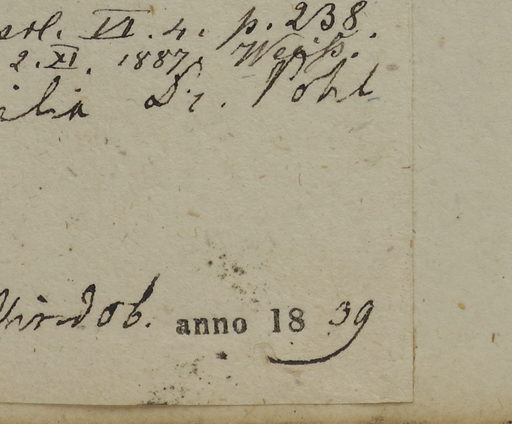 VI. 4. p. 238.
2. XI. 1887. Weiss.
Dr. Pohl
Vindob. anno 1839